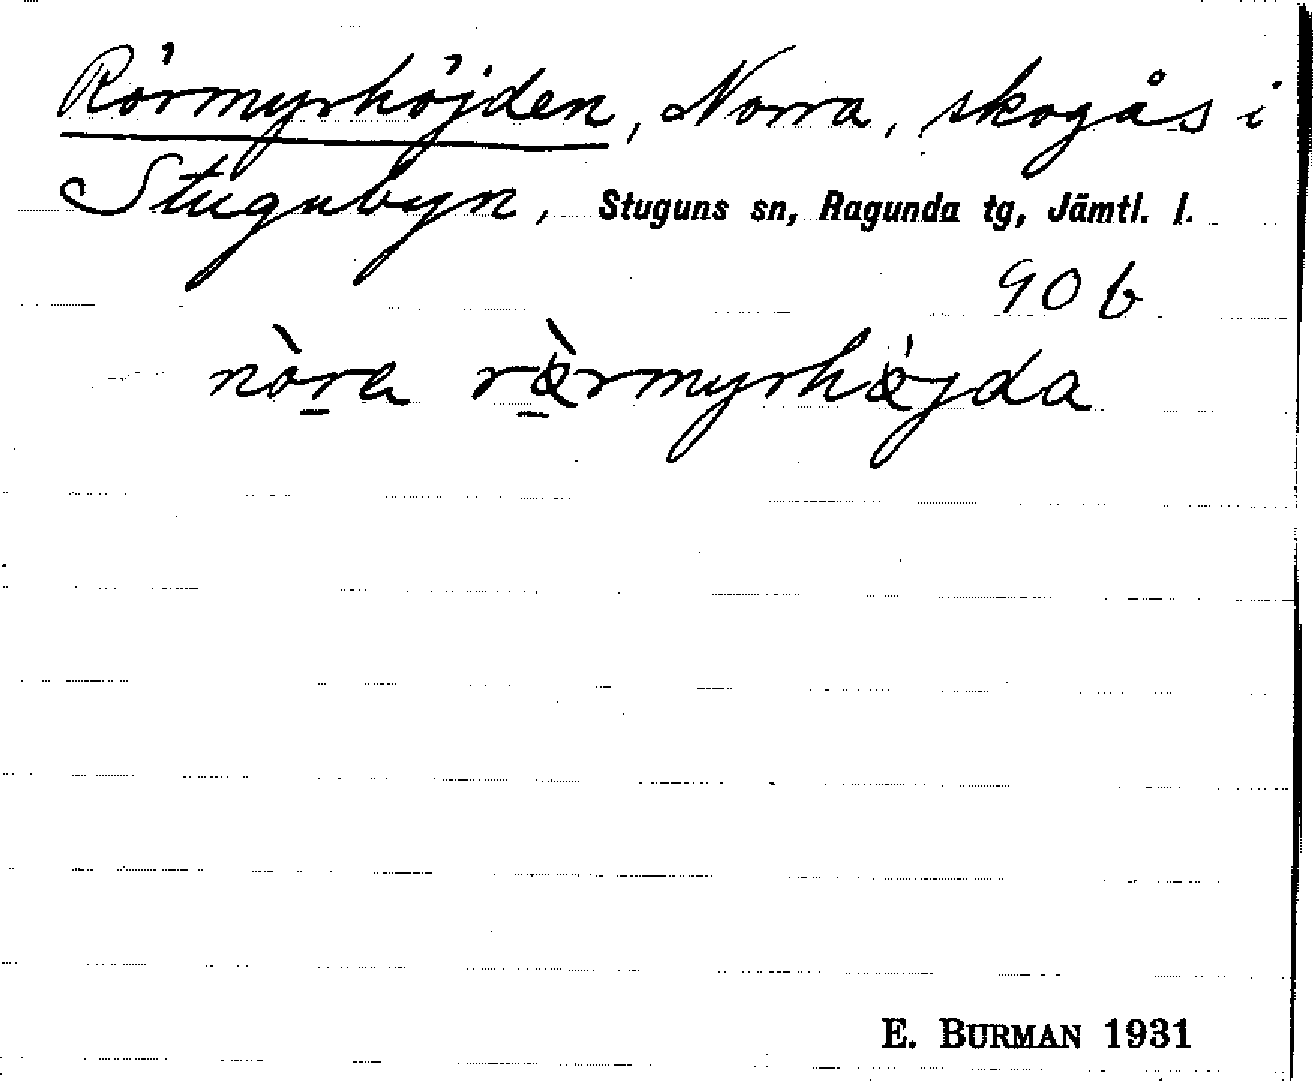 Rörmyrhöjden, Norra, skogås i
Stugubyn, Stuguns sn, Ragunda tg, Jämtl. l.
90 b
nòra rœ̀rmyrhœ́jda
E. BURMAN 1931